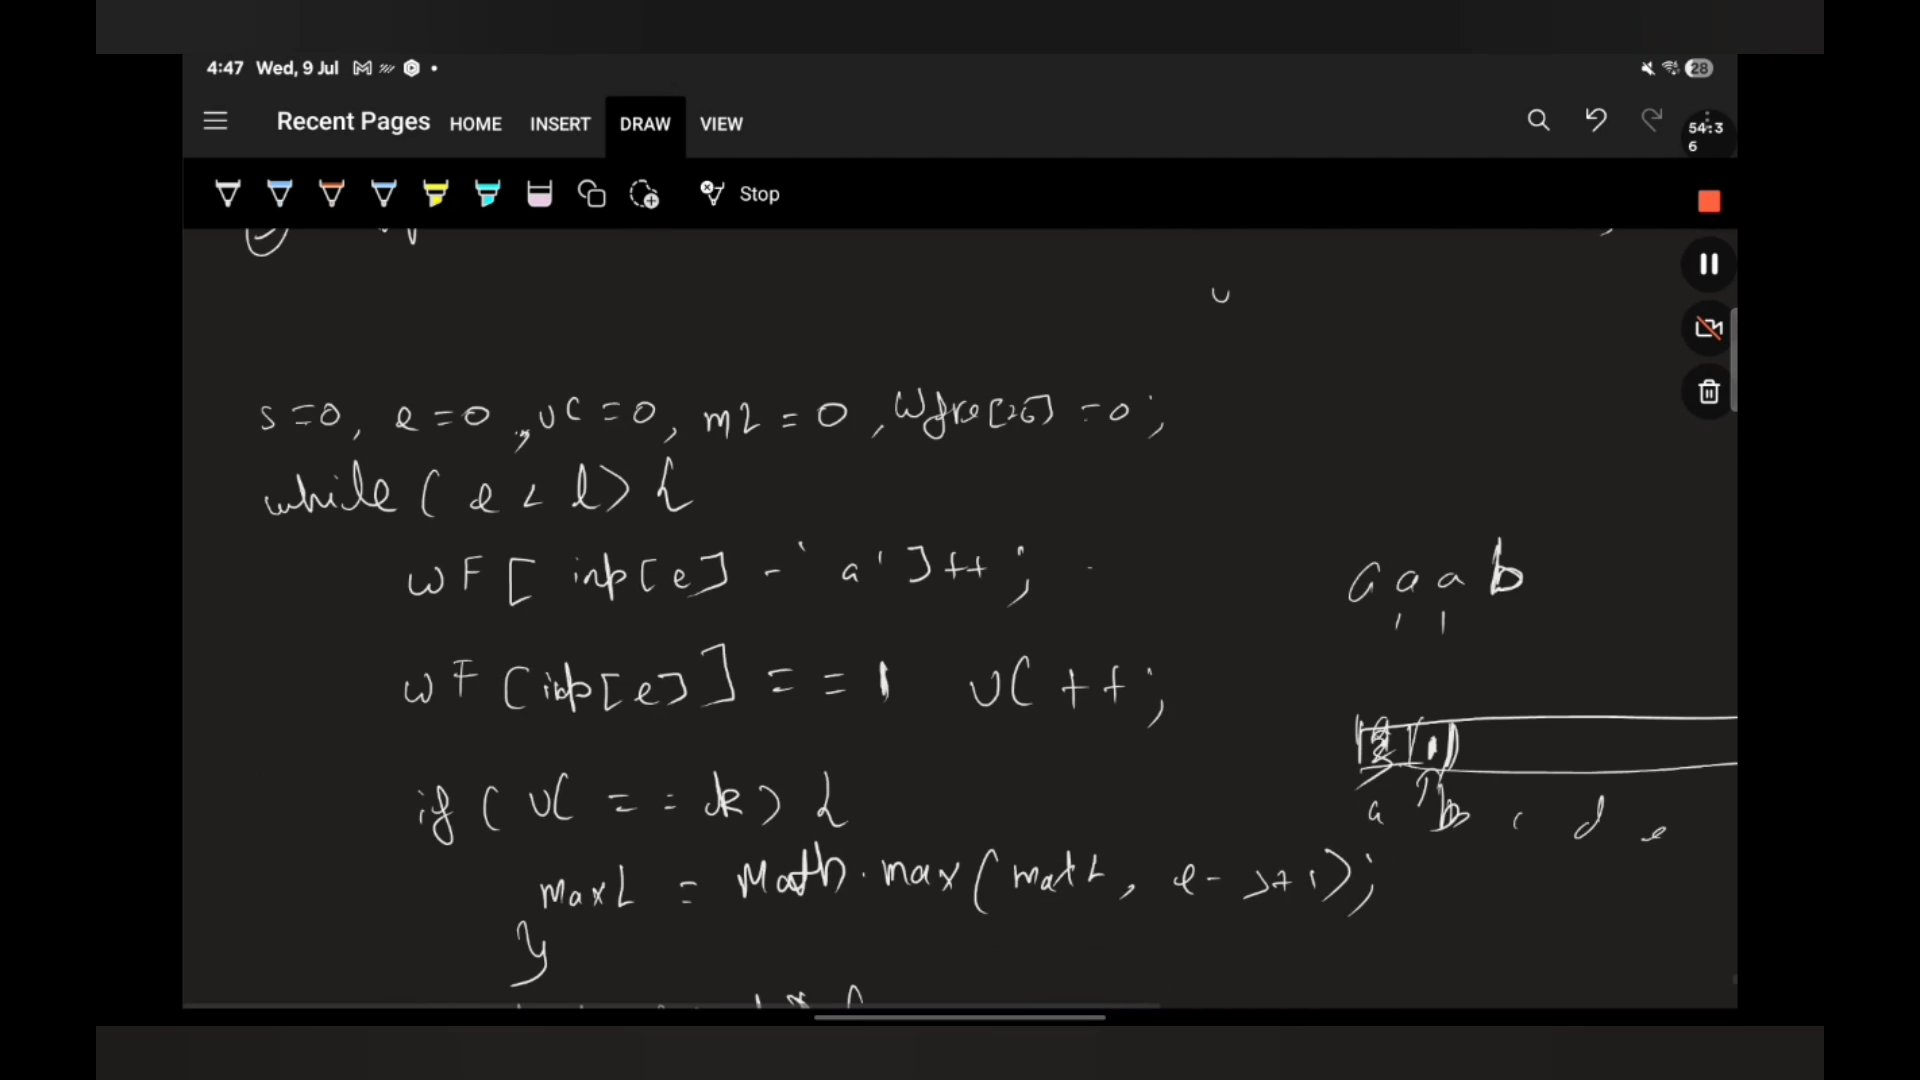 4:47 Wed, 9 Jul
28
Recent Pages HOME INSERT DRAW VIEW
54:3
6
Stop
s=0, e=0, uc=0, mL=0, Wfre[26]=0;
while(e<l){
WF[inp[e]-'a']++;
WF[inp[e]]==1 UC++;
if(UC==k){
maxL = Math.max(maxL, e-s+1);
}
a a a b
1
a b c d e